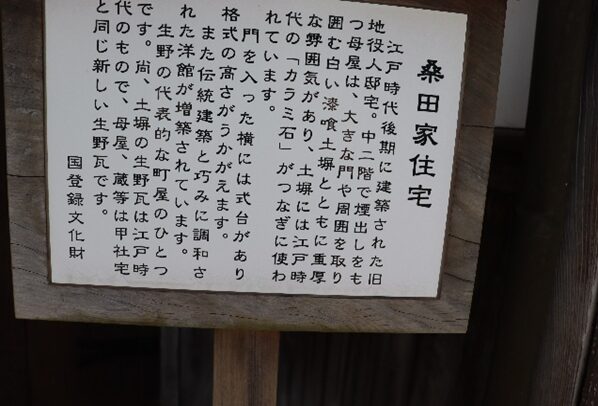 桑田家住宅
江戸時代後期に建築された旧
地役人邸宅。中二階で煙出しをも
つ母屋は、大きな門や周囲を取り
囲む白い漆喰土塀とともに重厚
な雰囲気があり、土塀には江戸時
代の「カラミ石」がつなぎに使わ
れています。
門を入った横には式台があり
格式の高さがうかがえます。
また伝統建築と巧みに調和さ
れた洋館が増築されています。
生野の代表的な町屋のひとつ
です。尚、土塀の生野瓦は江戸時
代のもので、母屋、蔵等は甲社宅
と同じ新しい生野瓦です。
国登録文化財